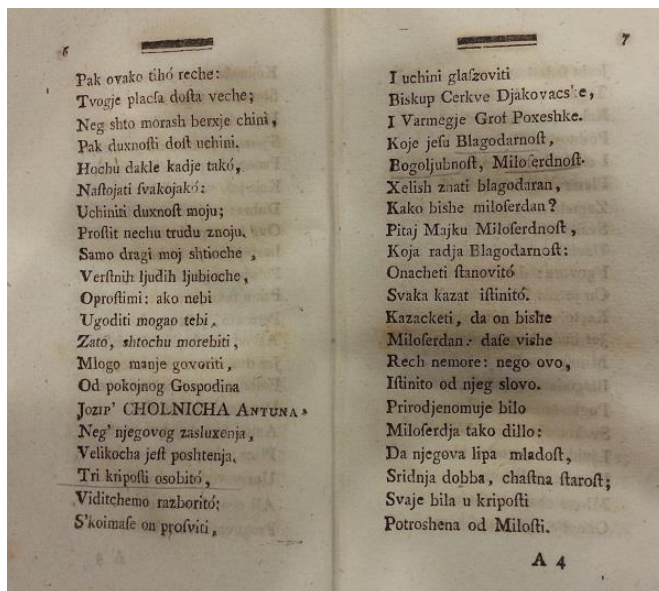 6
Pak ovako tihó reche:
Tvogje placſa doſta veche;
Neg shto morash berxje chini,
Pak duxnoſti doſt uchini.
Hochu dakle kadje takó,
Naſtojati ſvakojakó:
Uchiniti duxnoſt moju;
Proſtit nechu trudu znoju.
Samo dragi moj shtioche,
Verſtnih ljudih ljubioche,
Oproſtimi: ako nebi
Ugoditi mogao tebi,
Zató, shtochu morebiti,
Mlogo manje govoriti,
Od pokojnog Goſpodina
Jozip' CHOLNICHA ANTUNA,
Neg' njegovog zasluxenja,
Velikocha jeſt poshtenja.
Tri kripoſti osobitó,
Viditchemo razboritó;
S'koimaſe on proſviti,
7
I uchini glaſzoviti
Biskup Cerkve Djakovacske,
I Varmegje Grof Poxeshke.
Koje jeſu Blagodarnoſt,
Bogoljubnoſt, Miloſerdnoſt.
Xelish znati blagodaran,
Kako bishe miloſerdan?
Pitaj Majku Miloſerdnoſt,
Koja radja Blagodarnoſt:
Onacheti ſtanovitó
Svaka kazat iſtinitó.
Kazacketi, da on bishe
Miloſerdan: daſe vishe
Rech nemore: nego ovo,
Iſtinito od njeg slovo.
Prirodjenomuje bilo
Miloſerdja tako dillo:
Da njegova lipa mladoſt,
Sridnja dobba, chaſtna ſtaroſt;
Svaje bila u kripoſti
Potroshena od Miloſti.
A 4